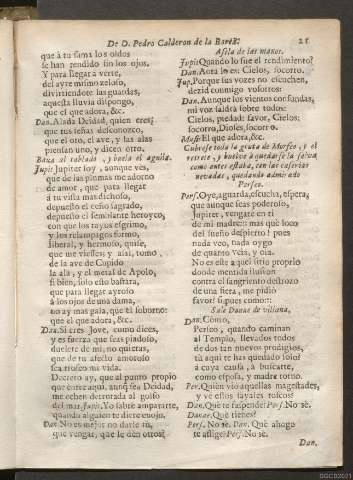 De D. Pedro Calderon de la Barca.
21
que à tu fama los oidos
se han rendido sin los ojos.
Y para llegar à verte,
del ayre mismo zeloso,
divirtiendote las guardas,
aquesta lluvia dispongo,
que el que adora, &c.
Dan. Alada Deidad, quien eres;
que tus señas desconozco,
que el oro, el ave, y las alas
piensan uno, y dicen otro.
Baxa al tablado, y buela el aguila.
Jupit. Jupiter soy, aunque ves,
que de las plumas me adorno
de amor, que para llegar
à tu vista mas dichoso,
depuesto el ceño sagrado,
depuesto el semblante heroyco,
con que los rayos esgrimo,
y los relampagos formo,
liberal, y hermoso, quise,
que me viesses: y assi, tomo
de la ave de Cupido
la ala, y el metal de Apolo,
si bien, solo esto bastára,
que para llegar ayroso
à los ojos de una dama,
no ay mas gala, que el soborno:
que el que adora, &c.
Dan. Si eres Jove, como dices,
y es fuerza que seas piadoso,
duelete de mi, no quieras,
que de tu afecto amoroso
sea trofeo mi vida.
Decreto ay, que al punto propio
que entre aqui, aunque sea Deidad,
me echen derrotada al golfo
del mar. Jupit. Yo sabrè ampararte,
quando alguien te diere enojo.
Dan. No es mejor no darle tù,
que vengar, que le dèn otros?
Asela de las manos.
Jupit. Quando lo fue el rendimiento?
Dan. Aora lo es: Cielos, socorro.
Jup. Porque sus vozes no escuchen,
dezid conmigo vosotros:
Dan. Aunque los vientos confundas,
mi voz saldrà sobre todos:
Cielos, piedad: favor, Cielos:
socorro, Dioses, socorro.
Music. El que adora, &c.
Cubrese toda la gruta de Morfeo, y el
retrete, y buelve à quedarse la selva
como antes estaba, con las caserias
nevadas, quedando admirado
Perseo.
Pers. Oye, aguarda, escucha, espera,
que aunque seas poderoso,
Jupiter, vengarè en ti
de mi madre:: mas què loco
del sueño despierto? pues
nada veo, nada oygo
de quanto veìa, y oìa.
No es este aquel sitio proprio
donde mentida ilusion
contra el sangriento destrozo
de una fiera, me pidiò
favor? si pues como:::
Sale Danae de villana.
Dan. Còmo,
Perseo, quando caminan
al Templo, llevados todos
de dos tan nuevos prodigios,
tù aqui te has quedado solo?
à cuya causa, à buscarte,
como esposa, y madre torno.
Per. Quien viò aquellas magestades,
y ve estos sayales toscos?
Dan. Què te suspende? Pers. No sè.
Danae. Què tienes?
Pers. No sè. Dan. Què ahogo
te aflige? Pers. No sè.
Dan.
DGCB2021